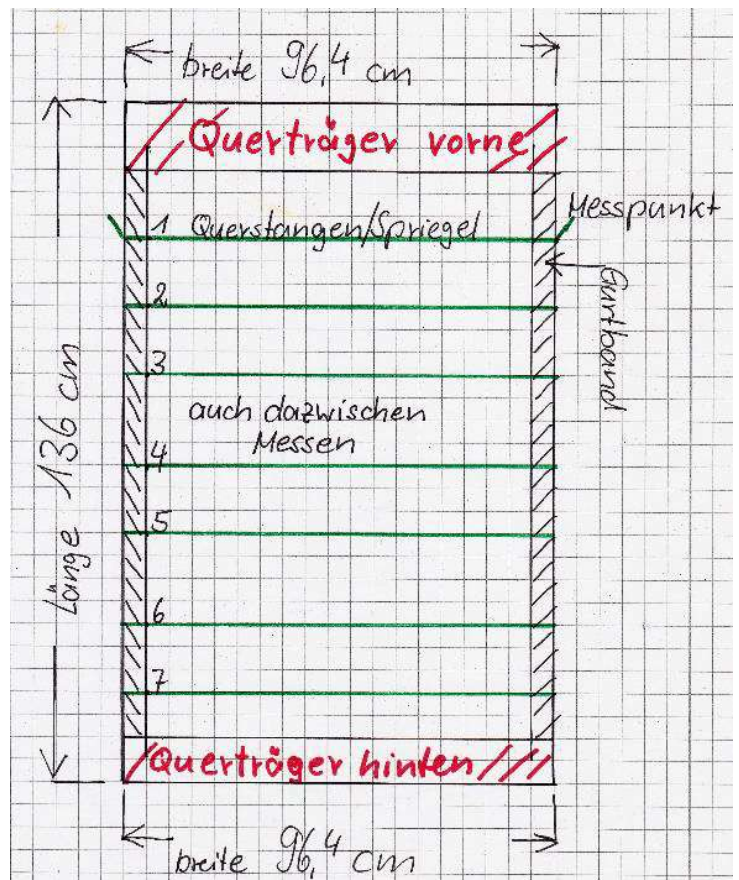 breite 96,4 cm
Querträger vorne
Messpunkt
1 Querstangen/Spriegel
Gurtband
2
3
auch dazwischen
Messen
4
5
Länge 136 cm
6
7
Querträger hinten
breite 96,4 cm